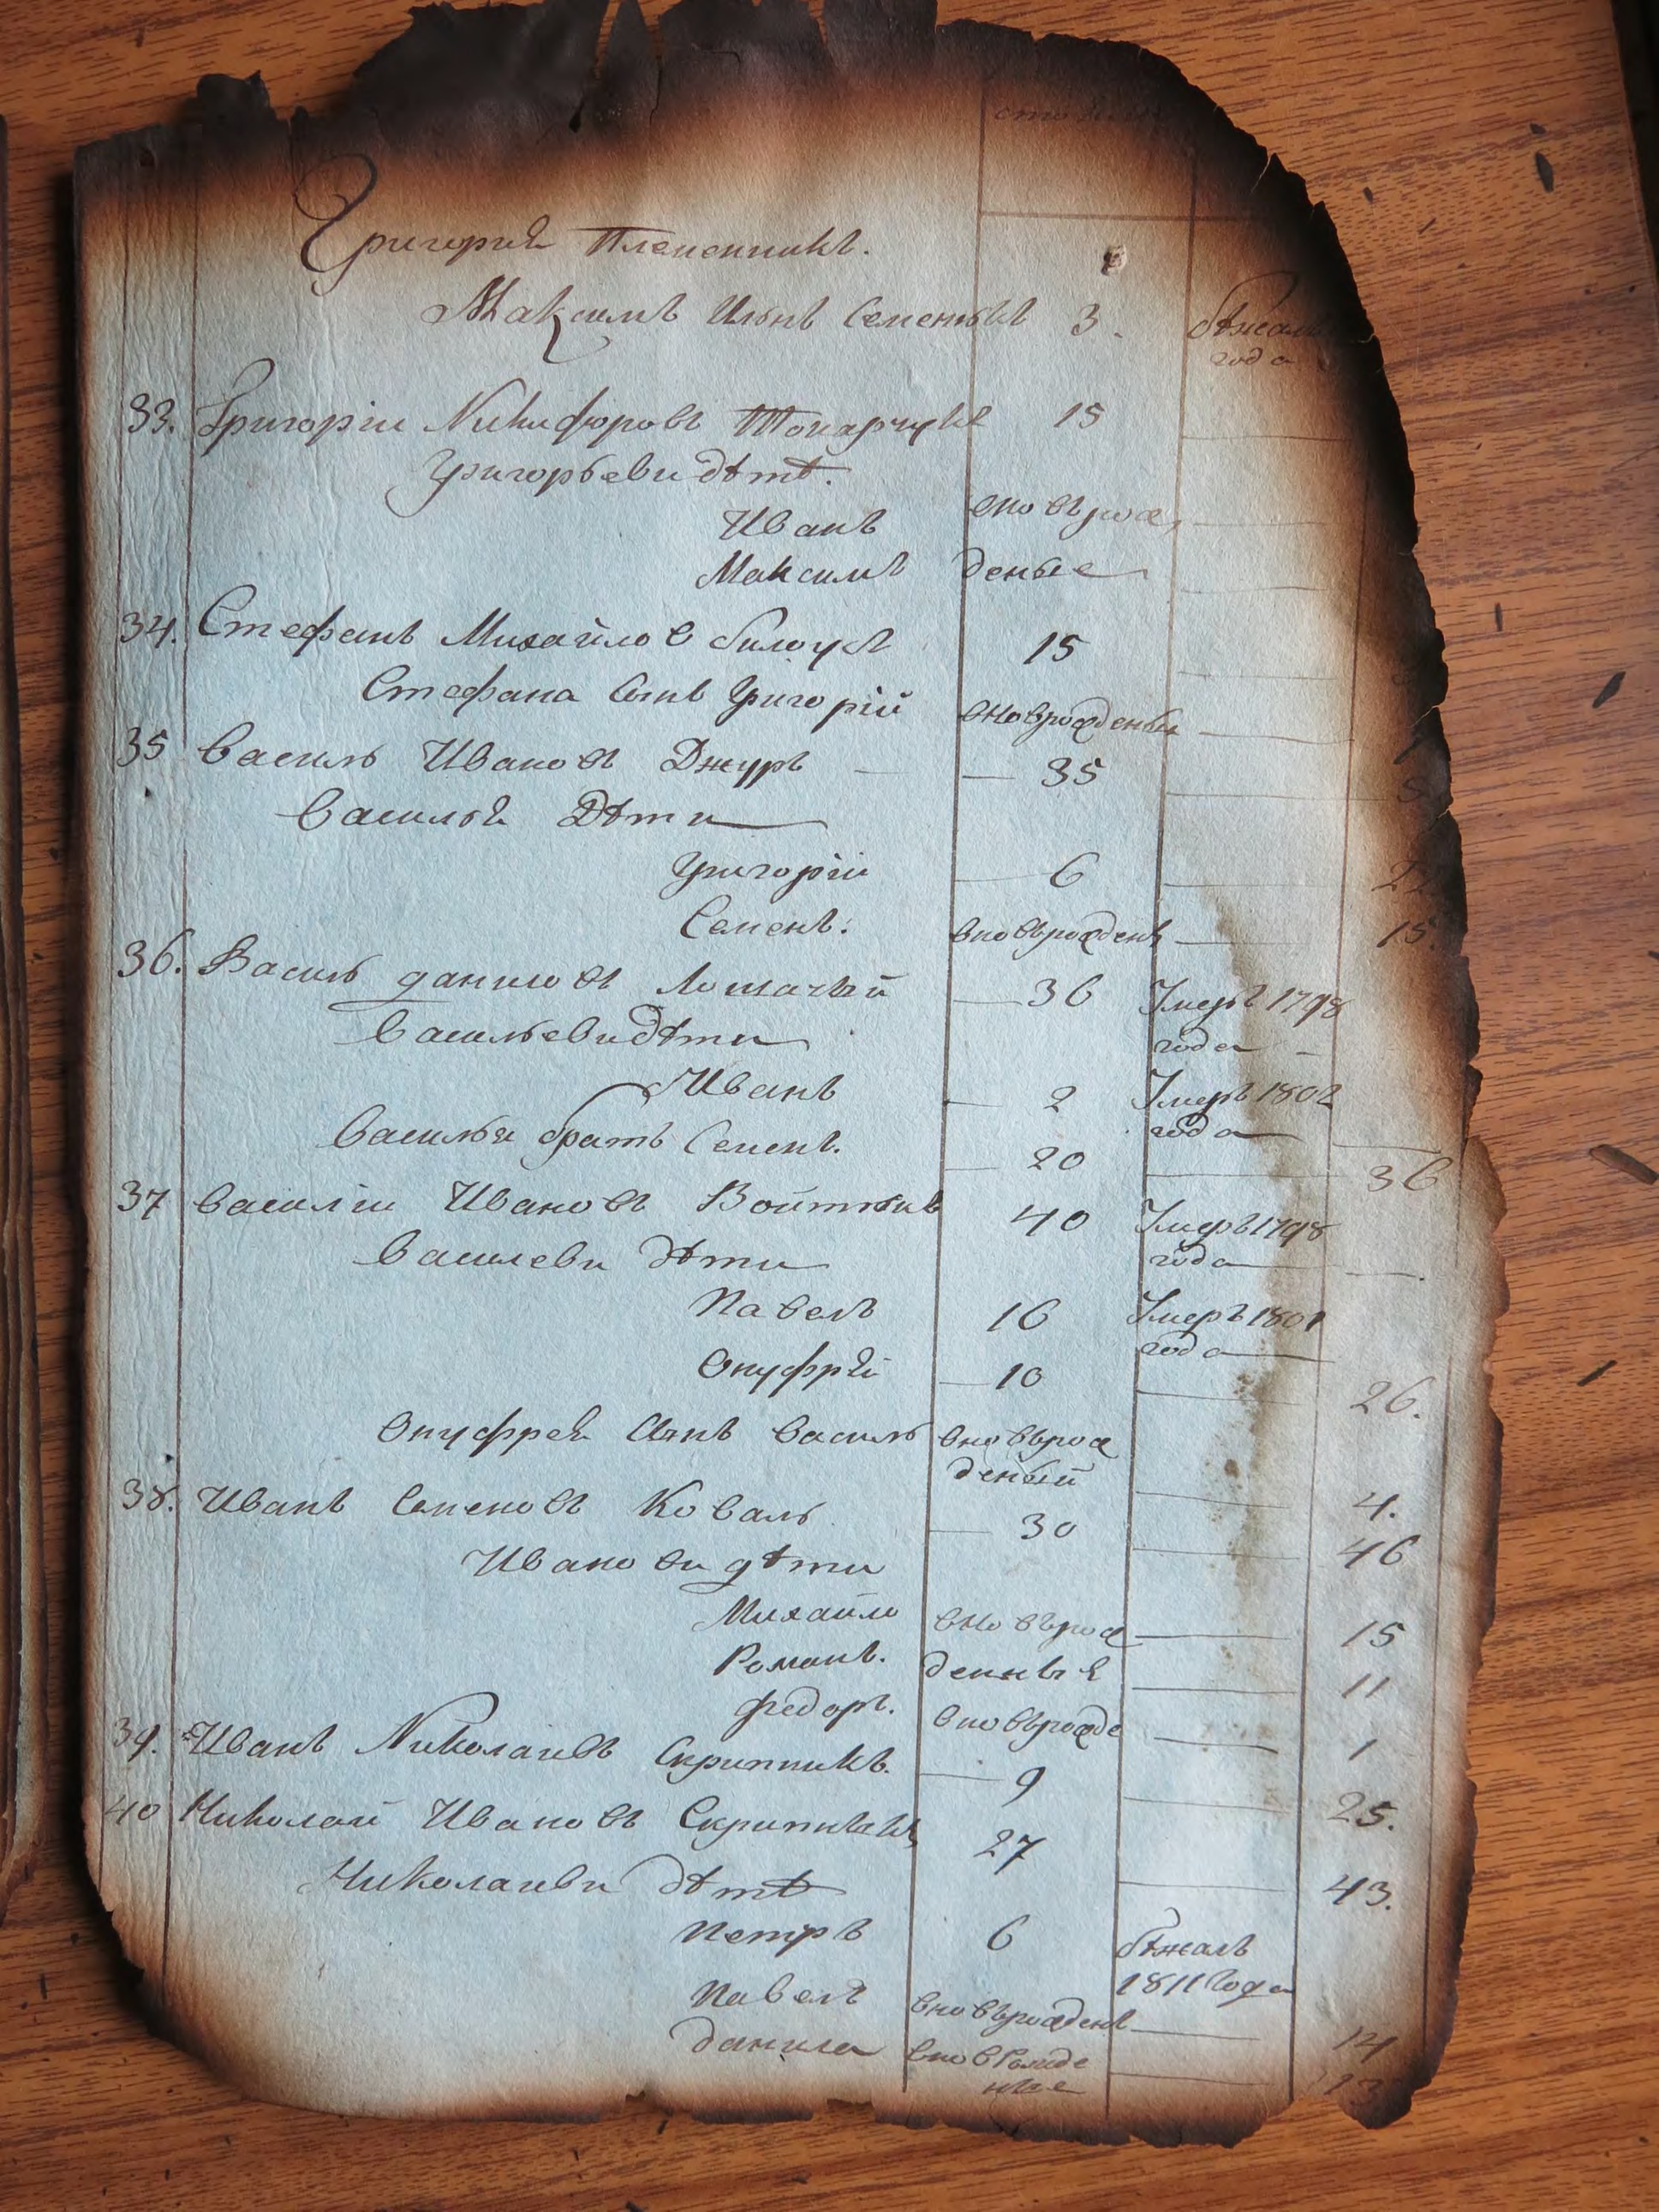 Григорія Племенникъ.
Максимъ Ильнъ Семенюкъ 3. бѣжалъ
года
33. Григоріи Никифоровъ Токарчукъ 15
Григорьеви дѣтѣ.
Иванъ вновьрож,
Максимъ деныe
34. Стефанъ Михайлов билоусъ 15
Стефана Сынъ Григорій вноврожденый
35 Василь Ивановъ Джуръ 35
Василья Дѣти
Григоріи 6 22
Семенъ. вновьрожденъ 15.
36. Василь даниловъ Лошачый 36 Умеръ 1798
года
Васильеви дѣти
Иванъ 2 Умеръ 1802
года
Васильи братъ Семенъ. 20 36
37 Василіи Ивановъ Войтюкъ 40 Умеръ 1798
года
Василеви дѣти
Павелъ 16 Умеръ 1801
года
Онуфрій 10 26.
Онуфрея Сынъ Василь вновьрож
деный 4.
38. Иванъ Семеновъ Коваль 30 46
Иванови дѣти
Михайло вновьрож 15
Романъ. денныя 11
федоръ. вновьрожде 1
39. Иванъ Николаивъ Скрипникъ. 9 25.
40 Николай Ивановъ Скрипникъ 27 43.
Николаиви дѣтѣ
Петръ 6 бѣжалъ
1811 года
Павелъ вновьрожденъ 14
данила